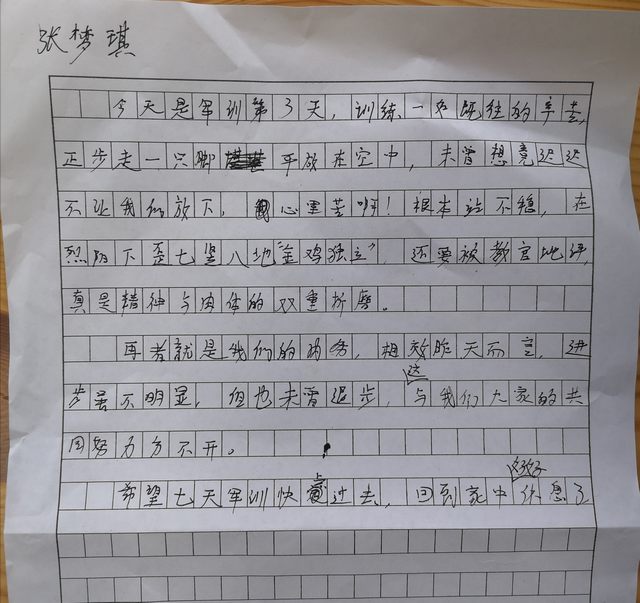 张梦琪
今天是军训第3天，训练一如既往的辛苦，
正步走一只脚平放在空中，未曾想竟迟迟
不让我们放下，心里苦呀！根本站不稳，在
烈阳下歪七竖八地“金鸡独立”，还要被教官批评，
真是精神与肉体的双重折磨。
再者就是我们的内务，相较昨天而言，进
步虽不明显，但也未曾退步，这与我们大家的共
同努力分不开。
希望七天军训快点过去，回到家中好好休息了